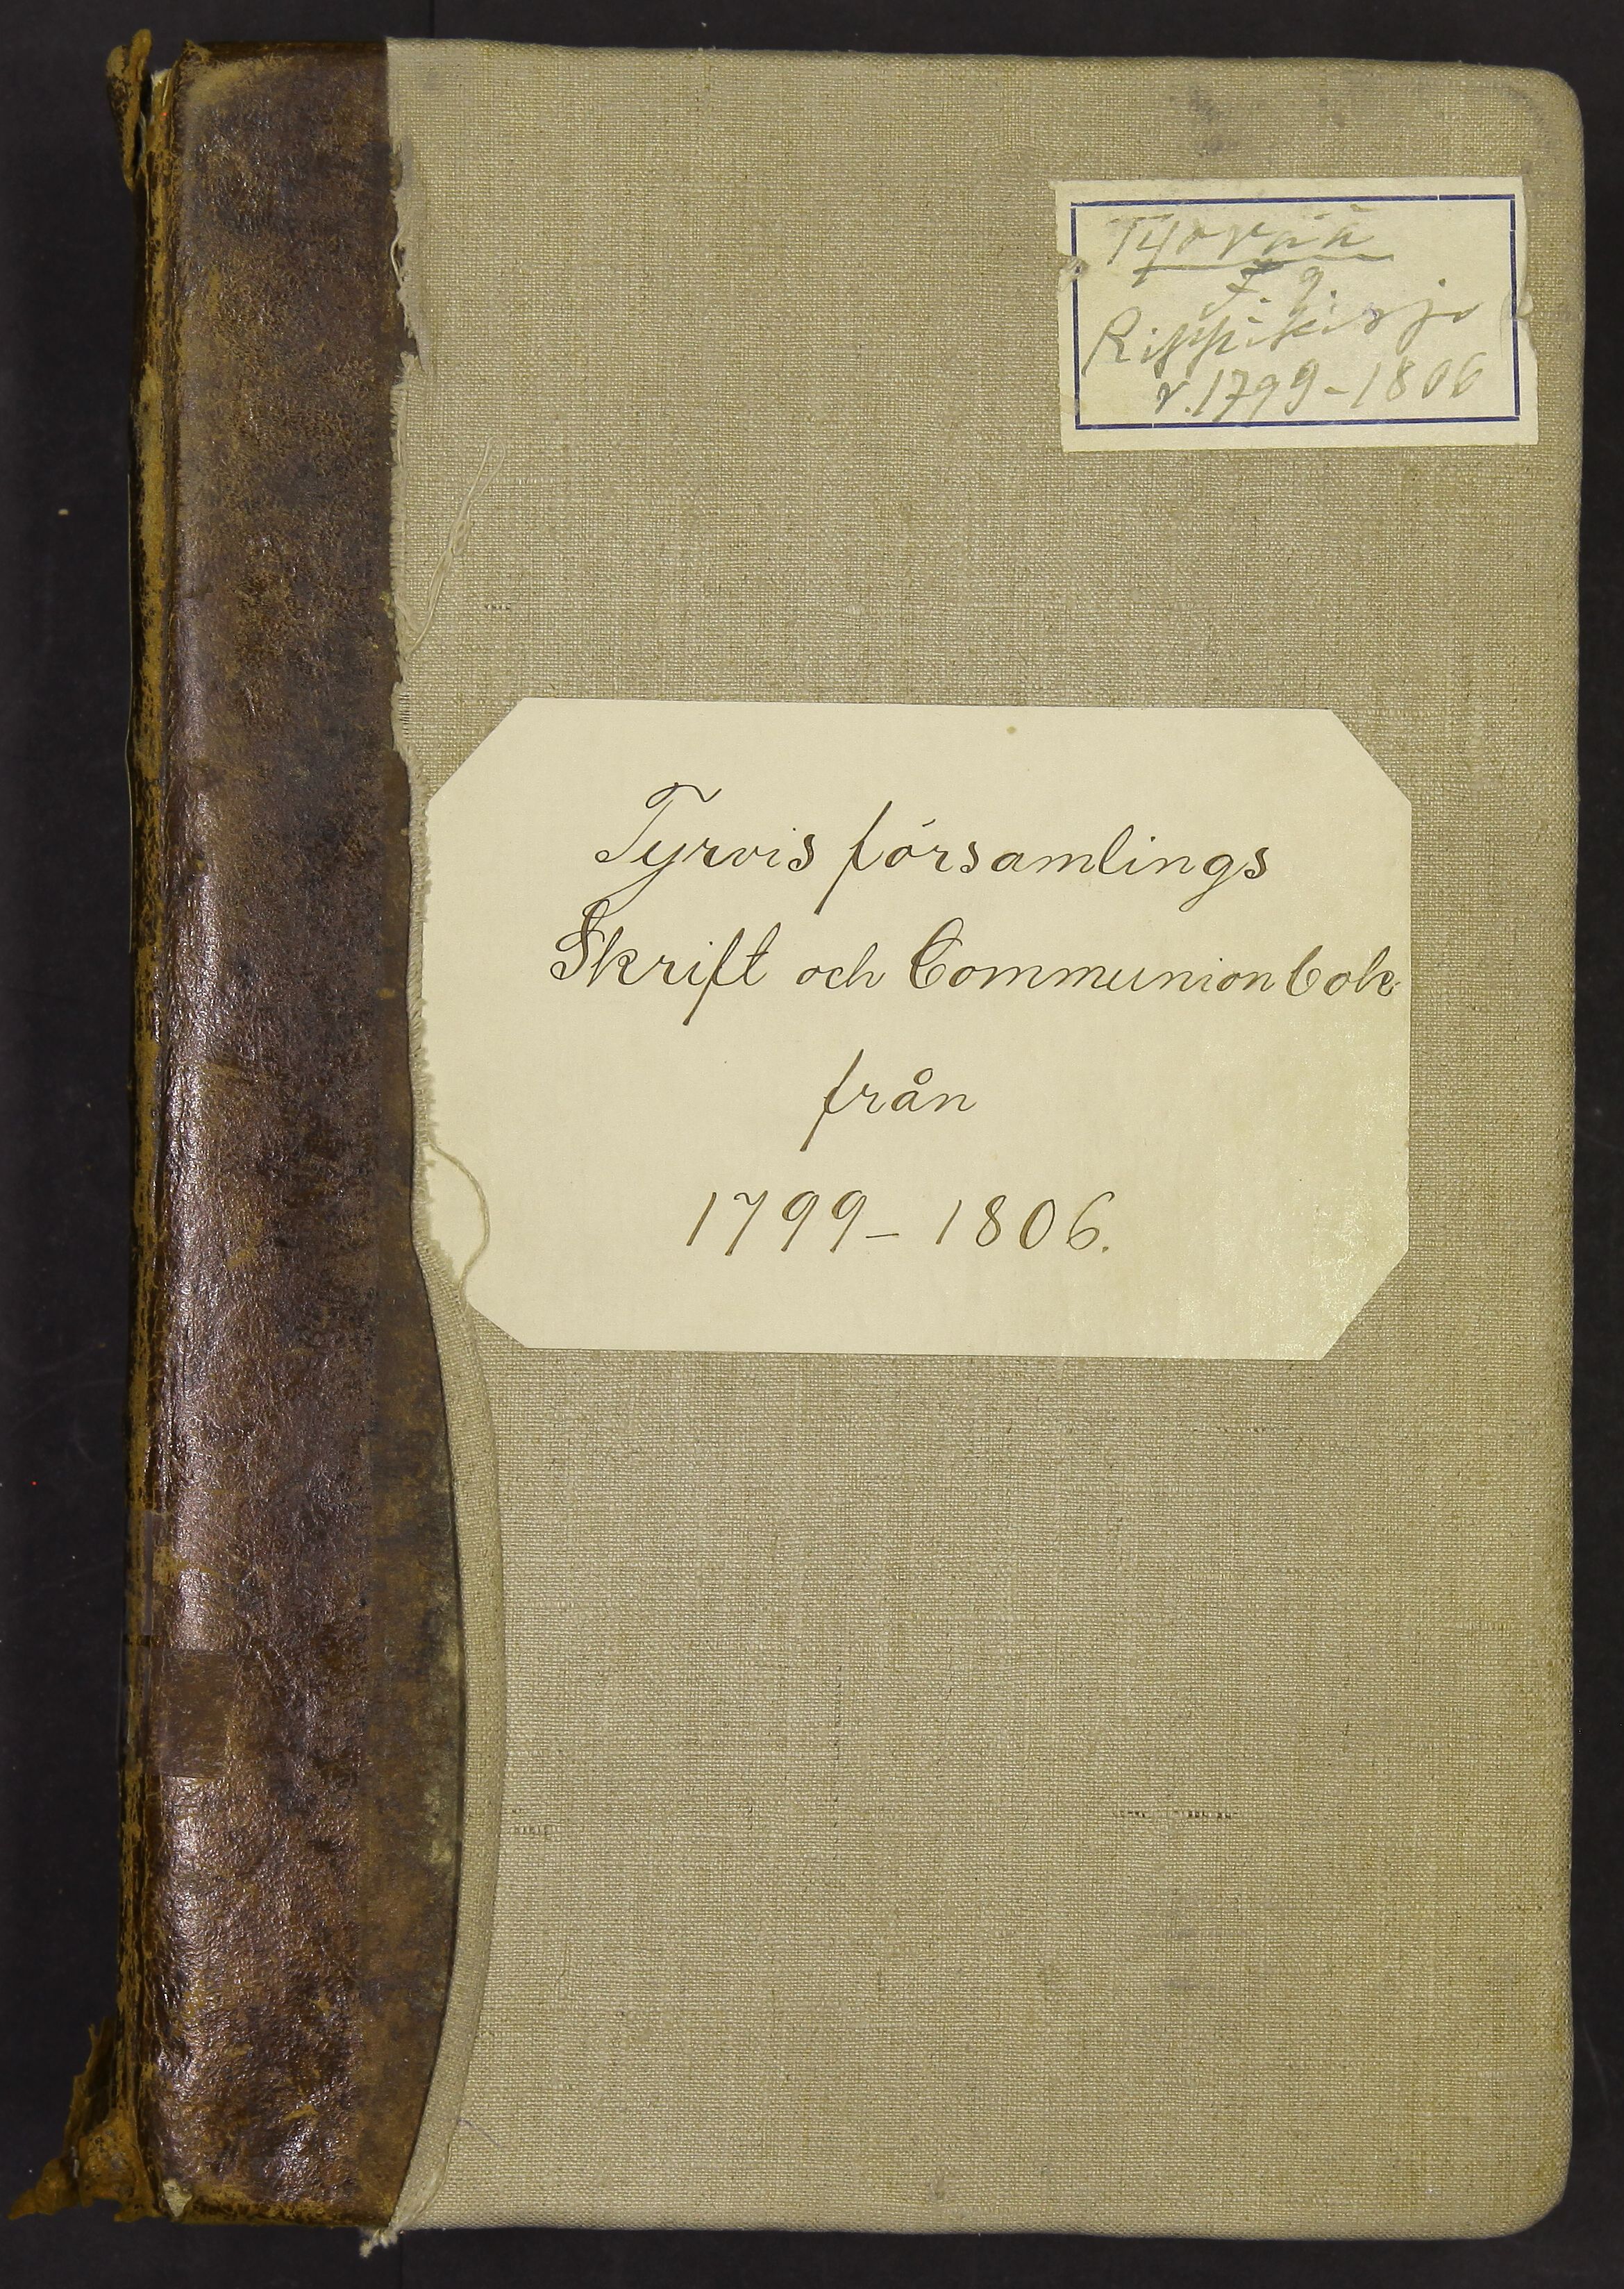 Tyrvää
I. 9.
Rippikirja
v. 1799-1806
Tyrvis församlings
Skrift och Communionbok
från
1799-1806.